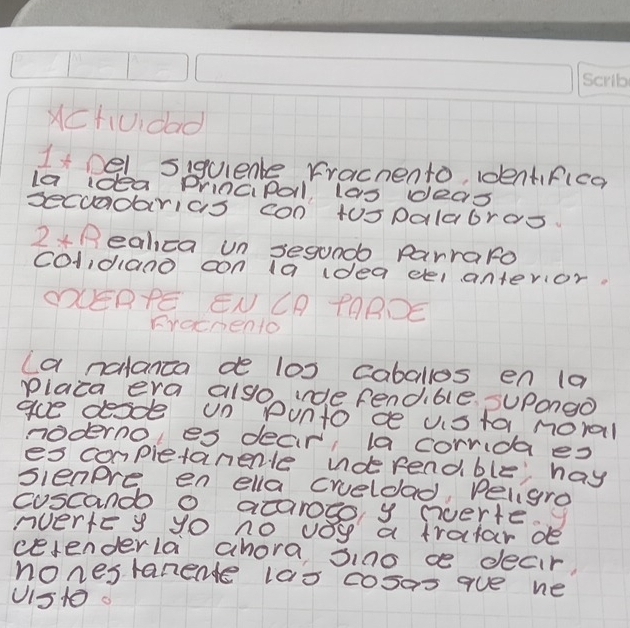 Scrib
Actividad
1* Del siguiente Fracnento, identifica
la idea Principal, las ideas
secuadarias con tus palabras.
2* Realica un segundo Parrafo
cotidiano con la idea del anterior.
MUERTE EN LA TARDE
Fracnento
La natanca de los caballos en la
Placa era algo indefendible. supongo
que desde un Punto de vista moral
noderno, es decir, la corrida es
es completanente indefendible; hay
sienpre en ella crueldad, Peligro
cuscando o acaroso, y muerte. y
nuerte y yo no voy a tratar de
defenderla ahora, sino de decir,
honestanente las cosas que he
visto.